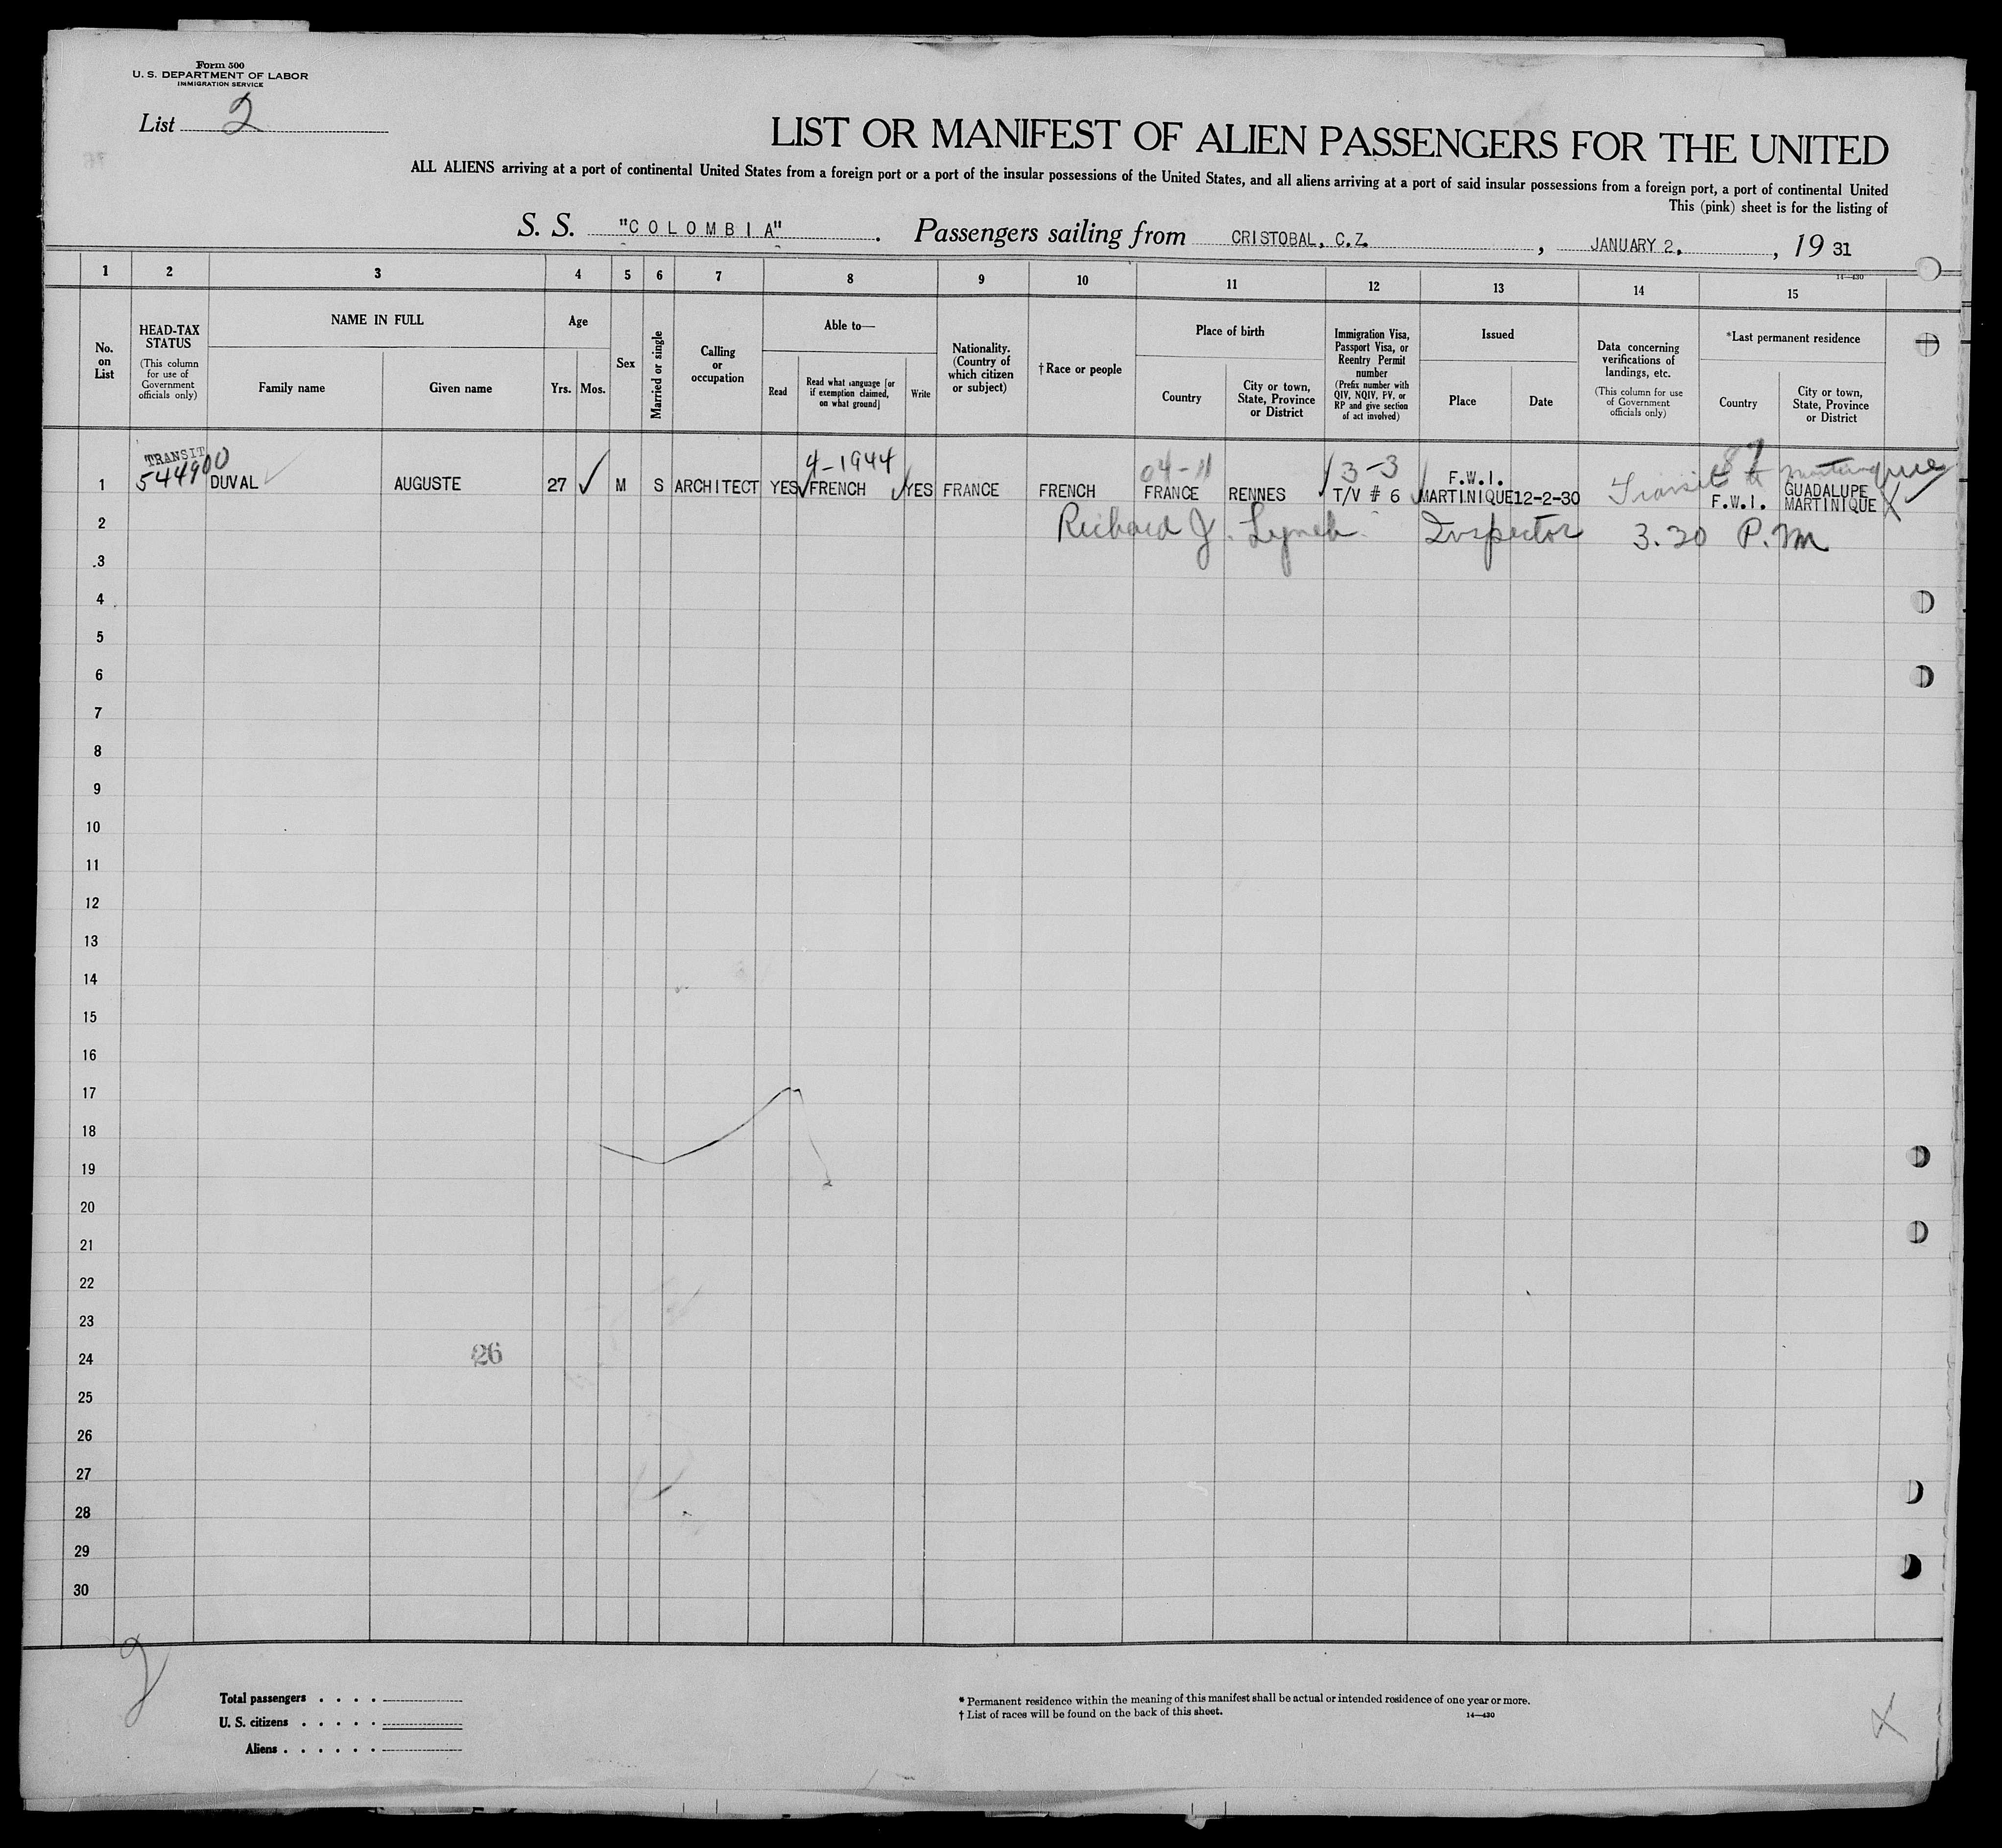 Form 500
U. S. DEPARTMENT OF LABOR
IMMIGRATION SERVICE
List 2
LIST OR MANIFEST OF ALIEN PASSENGERS FOR THE UNITED
ALL ALIENS arriving at a port of continental United States from a foreign port or a port of the insular possessions of the United States, and all aliens arriving at a port of said insular possessions from a foreign port, a port of continental United
This (pink) sheet is for the listing of
S. S. "COLOMBIA". Passengers sailing from CRISTOBAL, C.Z. , JANUARY 2, , 19 31
14—430
1 2 3 4 5 6 7 8 9 10 11 12 13 14 15
No. on List
HEAD-TAX STATUS
(This column for use of Government officials only)
NAME IN FULL
Family name
Given name
Age
Yrs. Mos.
Sex
Married or single
Calling or occupation
Able to—
Read
Read what language [or if exemption claimed, on what ground]
Write
Nationality. (Country of which citizen or subject)
† Race or people
Place of birth
Country
City or town, State, Province or District
Immigration Visa, Passport Visa, or Reentry Permit number
(Prefix number with QIV, NQIV, PV, or RP and give section of act involved)
Issued
Place
Date
Data concerning verifications of landings, etc.
(This column for use of Government officials only)
*Last permanent residence
Country
City or town, State, Province or District
TRANSIT 4-1944 04-11 3-3 F.W.I. Transit to Martinique
1 544900 DUVAL AUGUSTE 27 M S ARCHITECT YES FRENCH YES FRANCE FRENCH FRANCE RENNES T/V # 6 MARTINIQUE 12-2-30 F.W.I. GUADALUPE MARTINIQUE X
2 Richard J. Lynch Inspector 3.30 P.M
3
4
5
6
7
8
9
10
11
12
13
14
15
16
17
18
19
20
21
22
23
24 26
25
26
27
28
29
30
2
Total passengers . . . .
U. S. citizens . . . . .
Aliens . . . . . .
* Permanent residence within the meaning of this manifest shall be actual or intended residence of one year or more.
† List of races will be found on the back of this sheet.
14—430
X